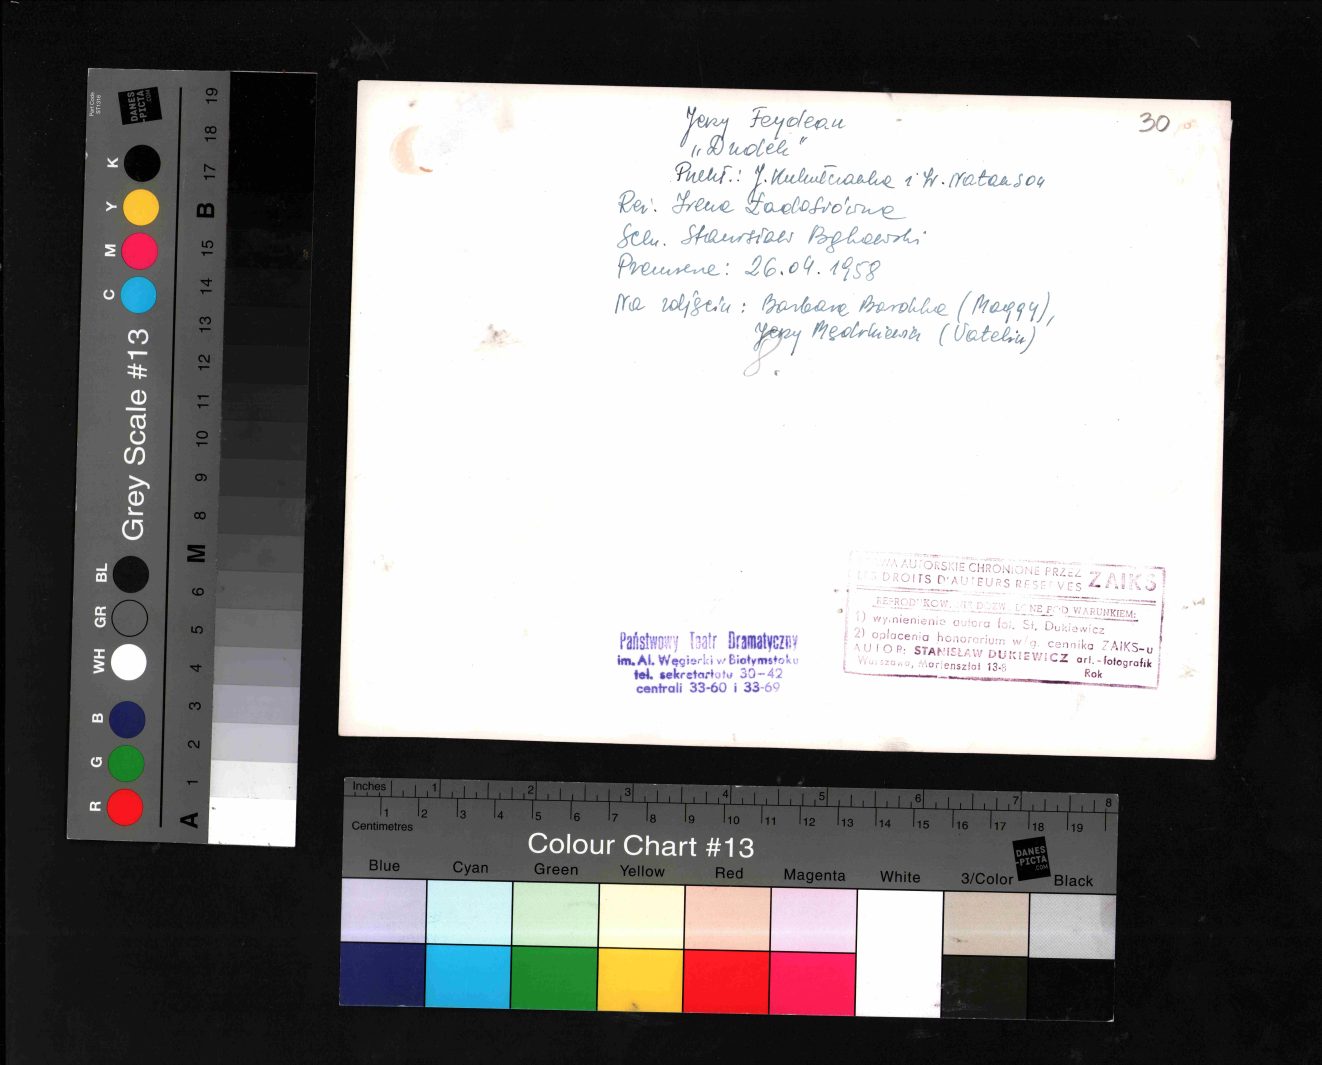 Jerzy Feydeau
„Dudek"
Przekł.: J. Kukulczanka i W. Natanson
30
Reż. Irena Ładosiówna
Scen. Stanisław Bąkowski
Premiera: 26.04.1958
Na zdjęciu: Barbara Bardzka (Maggy),
Jerzy (Vatelin)
Państwowy Teatr Dramatyczny
im. Al. Węgierki w Białymstoku
tel. sekretariatu 30-42
centrali 33-60 i 33-69
AUTORSKIE CHRONIONE PRZEZ ZAIKS
LES DROITS D'AUTEURS RESERVES
POD WARUNKIEM:
1) wymienienie autora fot. St. Dukiewicz
2) opłacenia honorarium w/g. cennika ZAIKS-u
AUTOR: STANISŁAW DUKIEWICZ art.-fotografik
Warszawa, Mariensztat 13-8
Rok
Part Code
ST1316
DANES
-PICTA
.COM
Grey Scale #13
R G B WH GR BL C M Y K
A 1 2 3 4 5 6 M 8 9 10 11 12 13 14 15 B 17 18 19
Inches 1 2 3 4 5 6 7 8
1 2 3 4 5 6 7 8 9 10 11 12 13 14 15 16 17 18 19
Centimetres
Colour Chart #13
DANES
-PICTA
.COM
Blue Cyan Green Yellow Red Magenta White 3/Color Black